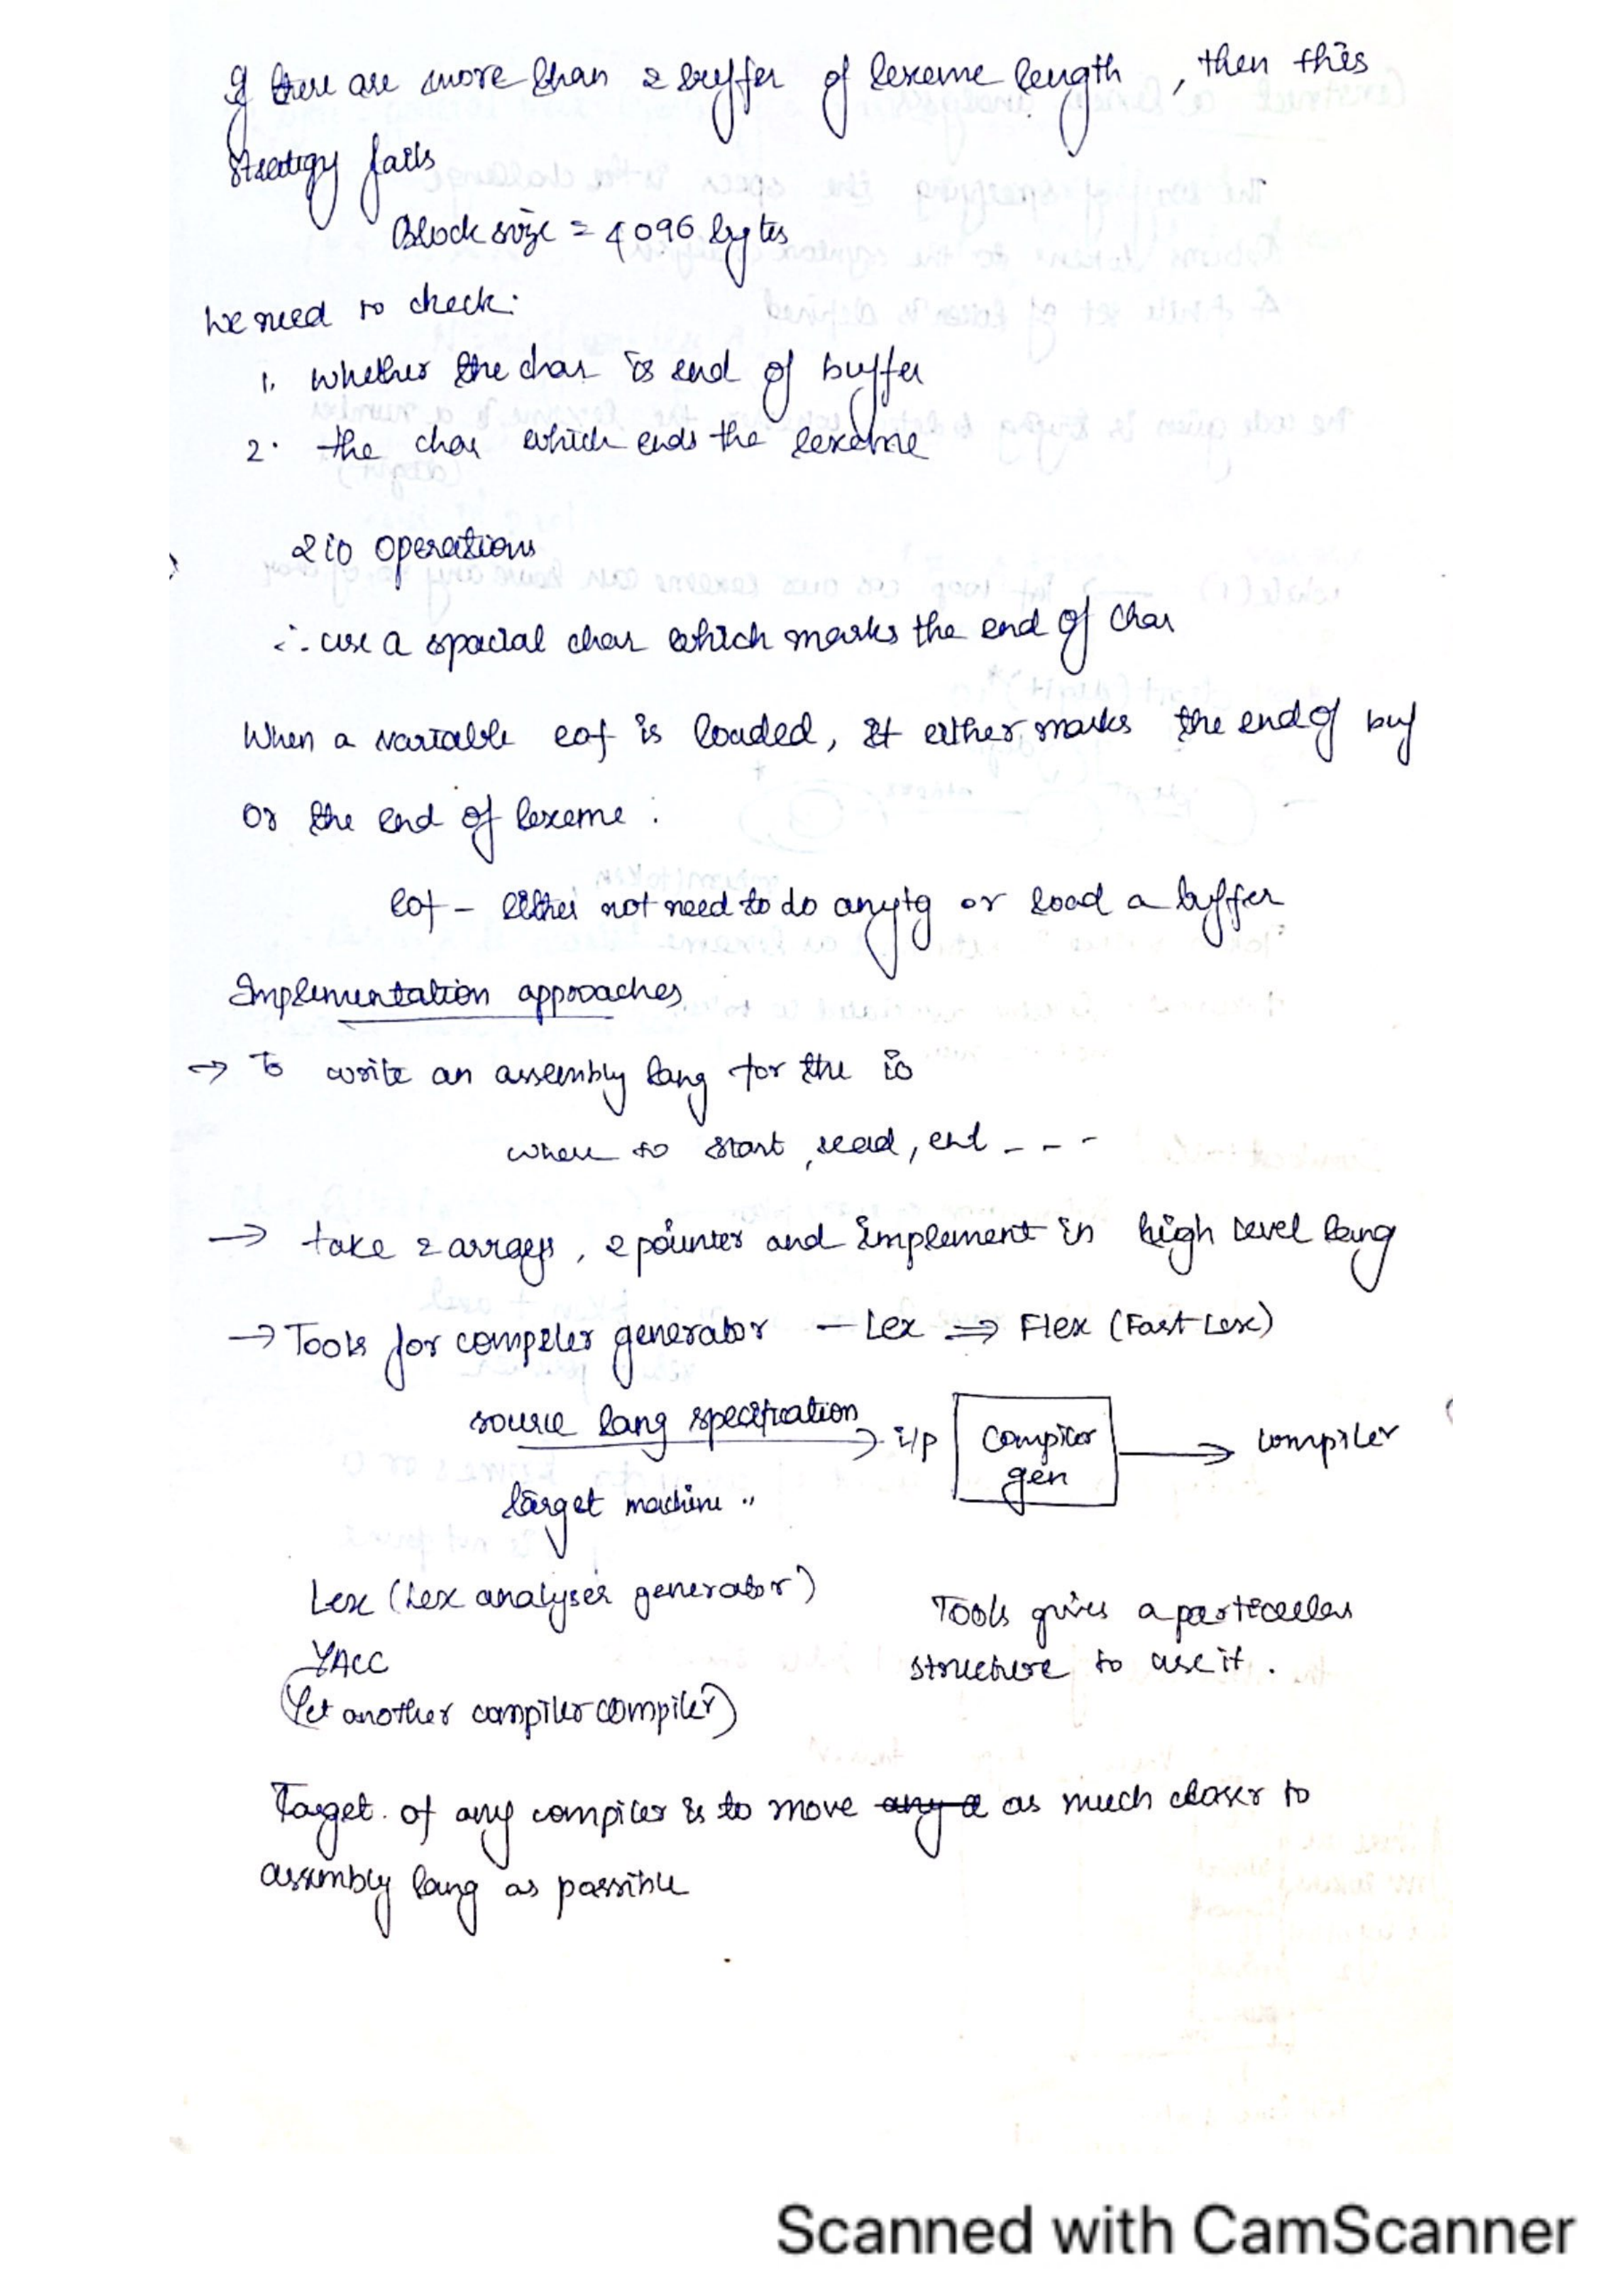 If there are more than 2 buffer of lexeme length, then this
strategy fails
Block size = 4096 bytes
We need to check:
1. whether the char is end of buffer
2. the char which ends the lexeme
2 io operations
∴ use a spacial char which marks the end of char
When a variable eof is loaded, it either marks the end of buf
or the end of lexeme :
eof - either not need to do anytg or load a buffer
Implementation approaches
→ To write an assembly lang for the io
where to start, read, end - - -
→ take 2 arrays, 2 pointer and implement in high level lang
→ Tools for compiler generator - Lex ⇒ Flex (Fast Lex)
source lang specification → i/p Compiler gen → compiler
target machine "
Lex (Lex analyser generator)
YACC
(Yet another compiler compiler)
Tools gives a particular
structure to use it.
Target of any compiler is to move any a as much closer to
assembly lang as possible
Scanned with CamScanner